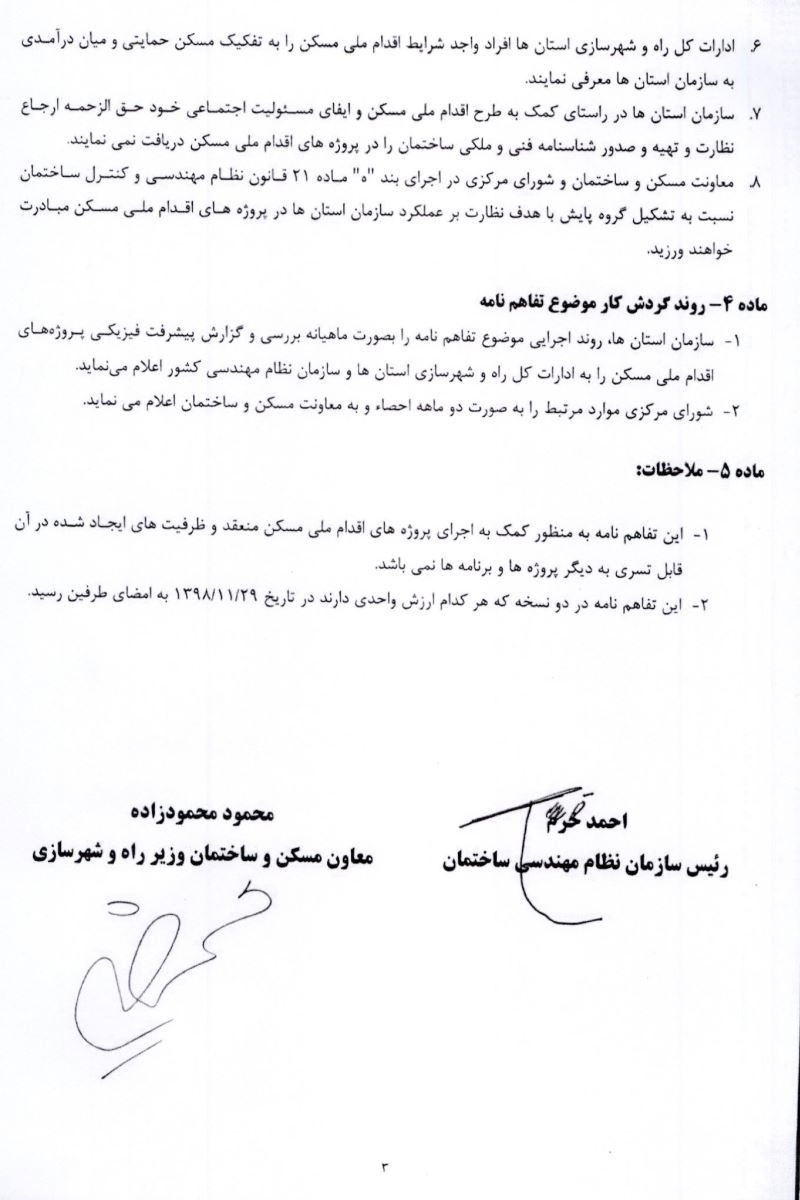 ۶. ادارات کل راه و شهرسازی استان ها افراد واجد شرایط اقدام ملی مسکن را به تفکیک مسکن حمایتی و میان درآمدی
به سازمان استان ها معرفی نمایند.
۷. سازمان استان ها در راستای کمک به طرح اقدام ملی مسکن و ایفای مسئولیت اجتماعی خود حق الزحمه ارجاع
نظارت و تهیه و صدور شناسنامه فنی و ملکی ساختمان را در پروژه های اقدام ملی مسکن دریافت نمی نمایند.
۸. معاونت مسکن و ساختمان و شورای مرکزی در اجرای بند "ه" ماده ۲۱ قانون نظام مهندسی و کنترل ساختمان
نسبت به تشکیل گروه پایش با هدف نظارت بر عملکرد سازمان استان ها در پروژه های اقدام ملی مسکن مبادرت
خواهند ورزید.
ماده ۴- روند گردش کار موضوع تفاهم نامه
۱- سازمان استان ها، روند اجرایی موضوع تفاهم نامه را بصورت ماهیانه بررسی و گزارش پیشرفت فیزیکی پروژه‌های
اقدام ملی مسکن را به ادارات کل راه و شهرسازی استان ها و سازمان نظام مهندسی کشور اعلام می‌نماید.
۲- شورای مرکزی موارد مرتبط را به صورت دو ماهه احصاء و به معاونت مسکن و ساختمان اعلام می نماید.
ماده ۵- ملاحظات:
۱- این تفاهم نامه به منظور کمک به اجرای پروژه های اقدام ملی مسکن منعقد و ظرفیت های ایجاد شده در آن
قابل تسری به دیگر پروژه ها و برنامه ها نمی باشد.
۲- این تفاهم نامه در دو نسخه که هر کدام ارزش واحدی دارند در تاریخ ۱۳۹۸/۱۱/۲۹ به امضای طرفین رسید.
احمد خرم
رئیس سازمان نظام مهندسی ساختمان
محمود محمودزاده
معاون مسکن و ساختمان وزیر راه و شهرسازی
۳